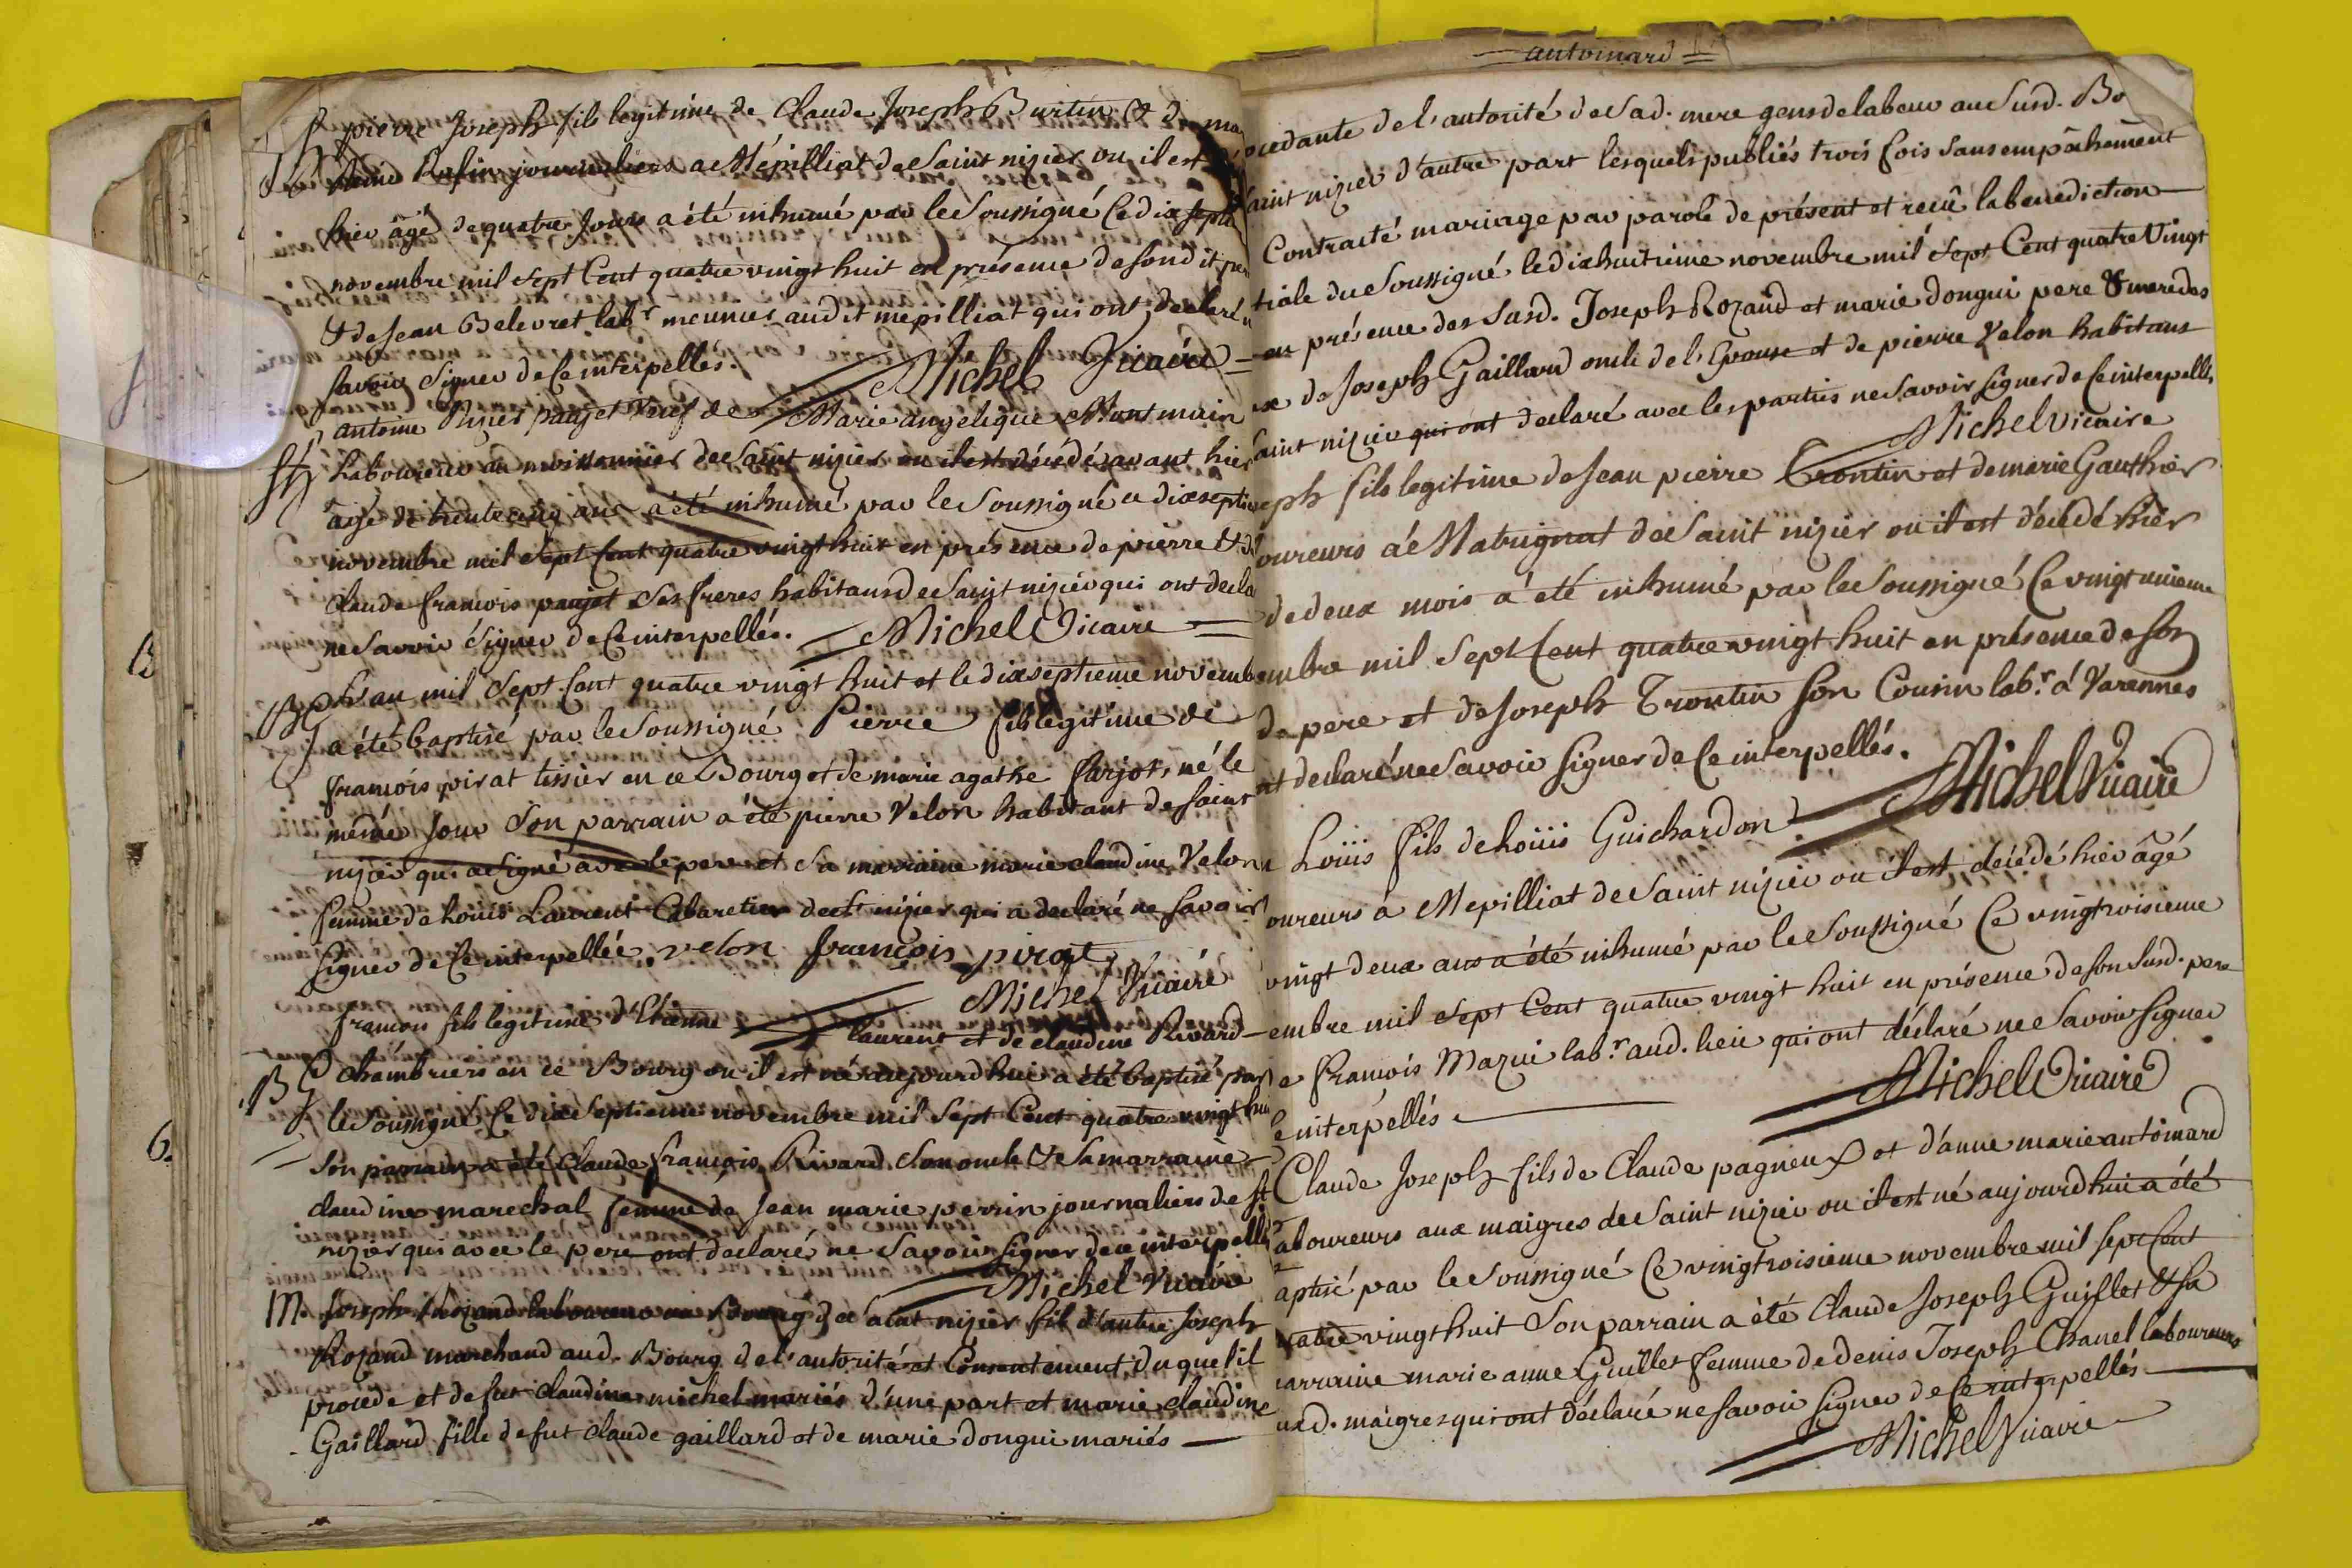 pierre Joseph fils legitime de Claude Joseph Burtin & de ma
Rufin journaliers a Mépilliat de Saint nizier ou il est
hier âgé de quatre Jours a été inhumé par le Soussigné Ce dix sept
novembre mil Sept Cent quatre vingt huit en présence de son dit pe
& de Jean Belevret labr meunier audit mepilliat qui ont declaré
savoir Signer de Ce interpellés.
Michel Vicaire
antoine Nizier paujet veuf de Marie angelique Montmain
Laboureur au de Saint nizier ou il est décédé avant hier
âgé de trente cinq ans a été inhumé par le Soussigné ce dix septie
novembre mil Sept Cent quatre vingt huit en présence de pierre & de
Claude françois paujet Ses freres habitans de Saint nizier qui ont decla
ne Savoir Signer de Ce interpellés.
Michel Vicaire
BG
L'an mil Sept Cent quatre vingt huit et le dix septieme novemb
a été baptisé par le Soussigné Pierre fils legitime de
françois pirat tissier en ce Bourg et de marie agathe farjot, né le
même Jour Son parrain a été pierre Velon habitant de saint
nizier qui a Signé avec le pere et Sa marraine marie claudine Velon
femme de Louis Laurent Cabaretier de St nizier qui a declaré ne Savoir
Signer de Ce interpellée. velon françois pirat
Michel Vicaire
francois fils legitime d'Etienne laurent et de claudine Rivard
BG
chambriers en ce Bourg ou il est né aujourd'hui a été baptisé par
le Soussigné Ce dix Septieme novembre mil Sept Cent quatre vingt hui
Son parrain a été Claude françois Rivard Son oncle & Sa marraine
claudine marechal femme de Jean marie perrin journaliers de St
nizier qui avec le pere ont declaré ne Savoir Signer de ce interpellé
Michel Vicaire
M.
Joseph Rozand laboureur au Bourg de Saint nizier fils d'autre Joseph
Rozand marchand aud. Bourg de l'autorité et Consentement duquel il
procede et de fut Claudine michel mariés d'une part et marie claudine
Gaillard fille de fut claude gaillard et de marie dongui mariés
B
6.
antoinard
ocedante de l'autorité de Sad. mere gens de labeur au Susd. Bo
aint nizier d'autre part lesquels publiés trois fois Sans empâchement
Contracté mariage par parole de présent et reçû la benediction
tiale du Soussigné le dix huitieme novembre mil Sept Cent quatre Vingt
en présence des Susd. Joseph Rozand et marie dongui pere & mere des
de Joseph Gaillard oncle de l'Epouse et de pierre Velon habitans
aint nizier qui ont declaré avec les parties ne Savoir Signer de Ce interpellés
Michel vicaire
eph fils legitime de Jean pierre Trontin et de marie Gauthier
oureurs à Matrignat de Saint nizier ou il est décédé hier
de deux mois a été inhumé par le Soussigné Ce vingt unieme
embre mil Sept Cent quatre vingt huit en présence de Son
d. pere et de Joseph Trontin Son Cousin labr. à Varennes
nt declaré ne Savoir Signer de Ce interpellés.
Michel Vicaire
Loüis fils de Loüis Guichardon
oureurs à Mepilliat de Saint nizier ou il est décédé hier âgé
vingt deux ans a été inhumé par le Soussigné Ce vingt troisieme
embre mil Sept Cent quatre vingt huit en présence de Son Susd. pere
e François Mazui labr. aud. lieu qui ont déclaré ne Savoir Signer
e interpellés
Michel Vicaire
Claude Joseph fils de Claude pagneux et d'anne marie antoinard
aboureurs aux maigres de Saint nizier ou il est né aujourd'hui a été
aptisé par le Soussigné Ce vingt troisieme novembre mil Sept Cent
uatre vingt huit Son parrain a été Claude Joseph Guillet & Sa
arraine marie anne Guillet femme de denis Joseph Chanel laboureurs
uxd. maigres qui ont déclaré ne Savoir Signer de Ce interpellés
Michel Vicaire